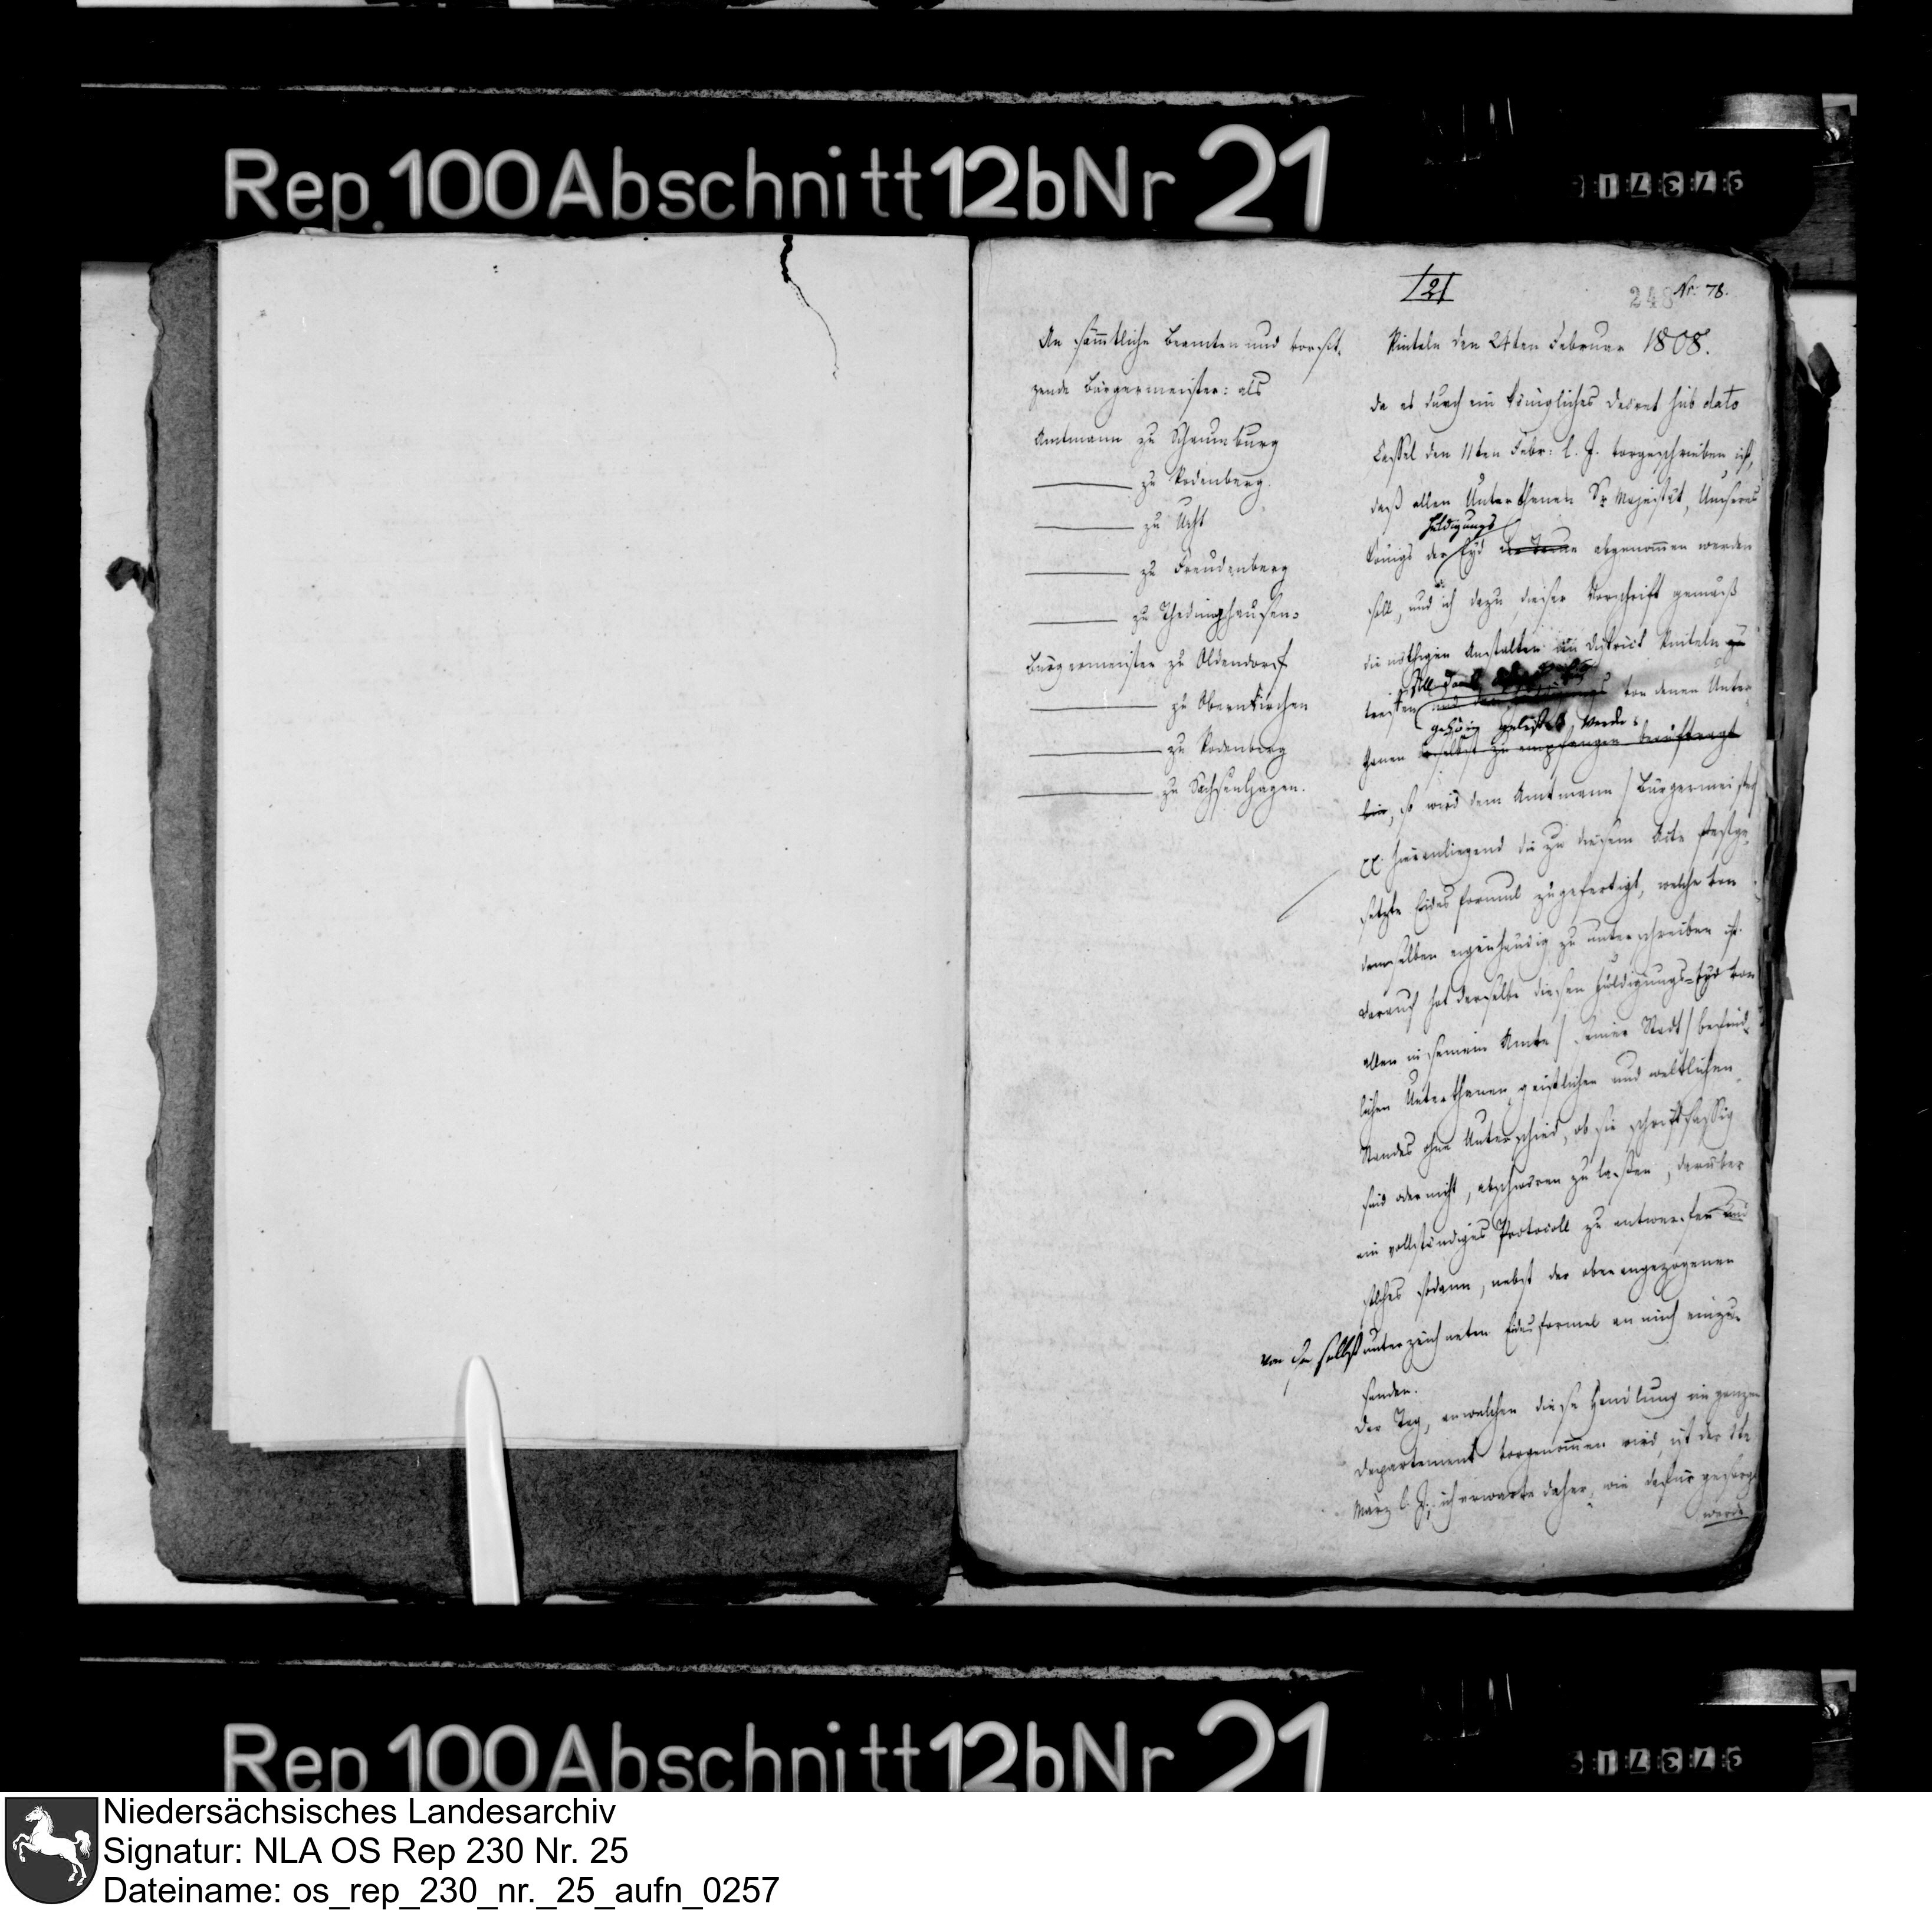 Rep. 100 Abschnitt 12b Nr 21
21
248
Nr. 78.
An sämtliche Beamten und vorsit-
zende Bürgermeister: als
Amtmann zu Schaumburg
——— zu Rodenberg.
——— zu Ucht
——— zu Freudenberg
——— zu Thedinghausen.
Bürgermeister zu Oldendorf
——— zu Obernkirchen
——— zu Rodenberg
——— zu Sachsenhagen.
Rinteln den 24ten Februar 1808.
Da es durch ein Königliches Decret sub dato
Cassel den 11ten Febr: l. J. vorgeschrieben ist,
daß allen Unterthanen Sr Majestät, Unseres
Huldigungs
Königs der Eyd der Treue abgenommen werden
soll, und ich dazu dieser Vorschrift gemäß
die nöthigen Anstalten im District Rinteln zu
treffen von denen Unter-
gehörig geleistet werde:
thanen selbst zu empfangen beauftragt
bin, so wird dem Amtmann / Bürgermeister
xx. hieranliegend die zu diesem Acte festge-
setzte Eidesformul zugefertigt, welche von
demselben eigenhändig zu unterschreiben ist.
Darauf hat derselbe diesen Huldigungs-Eyd von
allen in seinem Amte / seiner Stadt / befind-
lichen Unterthanen, geistlichen und weltlichen
Standes ohne Unterschied, ob sie schriftsässig
seid oder nicht, abschwören zu lassen, darüber
ein vollständiges Protocoll zu entwerfen und
solches sodann, nebst der obenangezogenen
von selbst unterzeichneten Eidesformel an mich einzu-
senden.
Der Tag, an welchen diese Handlung im ganzen
Departement vorgenommen wird, ist der
März l. J.; ich erwarte daher, wie dafür gesorgt
werde
Rep 100 Abschnitt 12b Nr 21
Niedersächsisches Landesarchiv
Signatur: NLA OS Rep 230 Nr. 25
Dateiname: os_rep_230_nr._25_aufn_0257